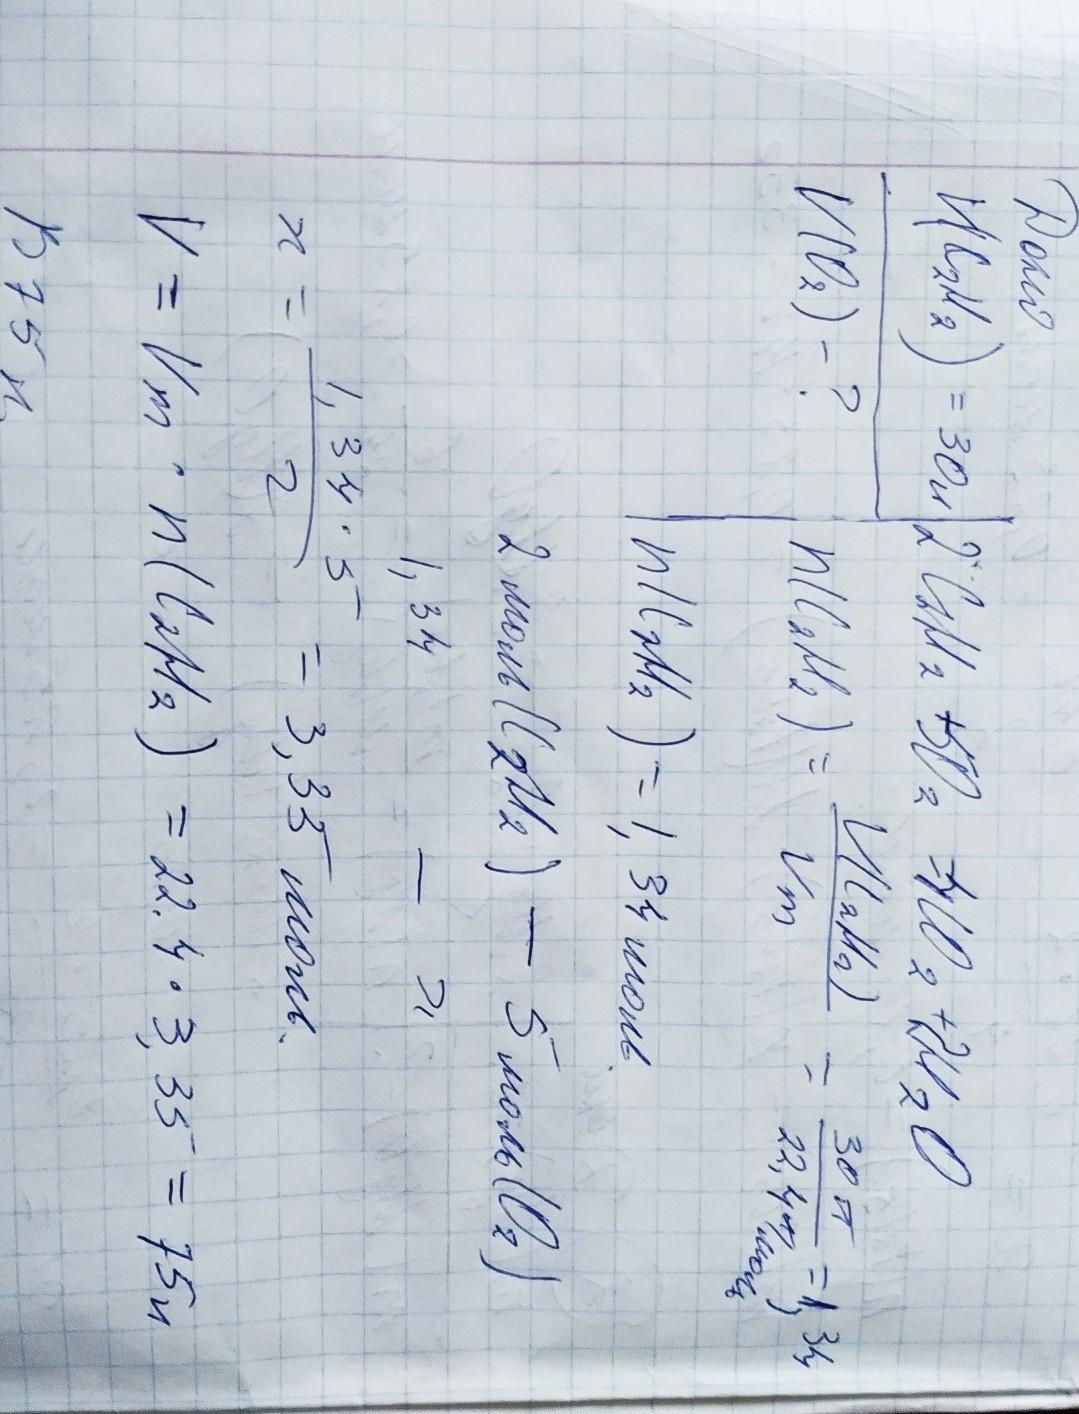 Дано
V(C₂H₂) = 30л
V(O₂) - ?
2C₂H₂ + 5O₂ → 4CO₂ + 2H₂O
n(C₂H₂) = V(C₂H₂) / Vm = 30 л / 22,4 л/моль = 1,34
n(C₂H₂) = 1,34 моль.
2 моль (C₂H₂) — 5 моль (O₂)
1,34 — x
x = 1,34 · 5 / 2 = 3,35 моль.
V = Vm · n(C₂H₂) = 22.4 · 3,35 = 75л
75 л